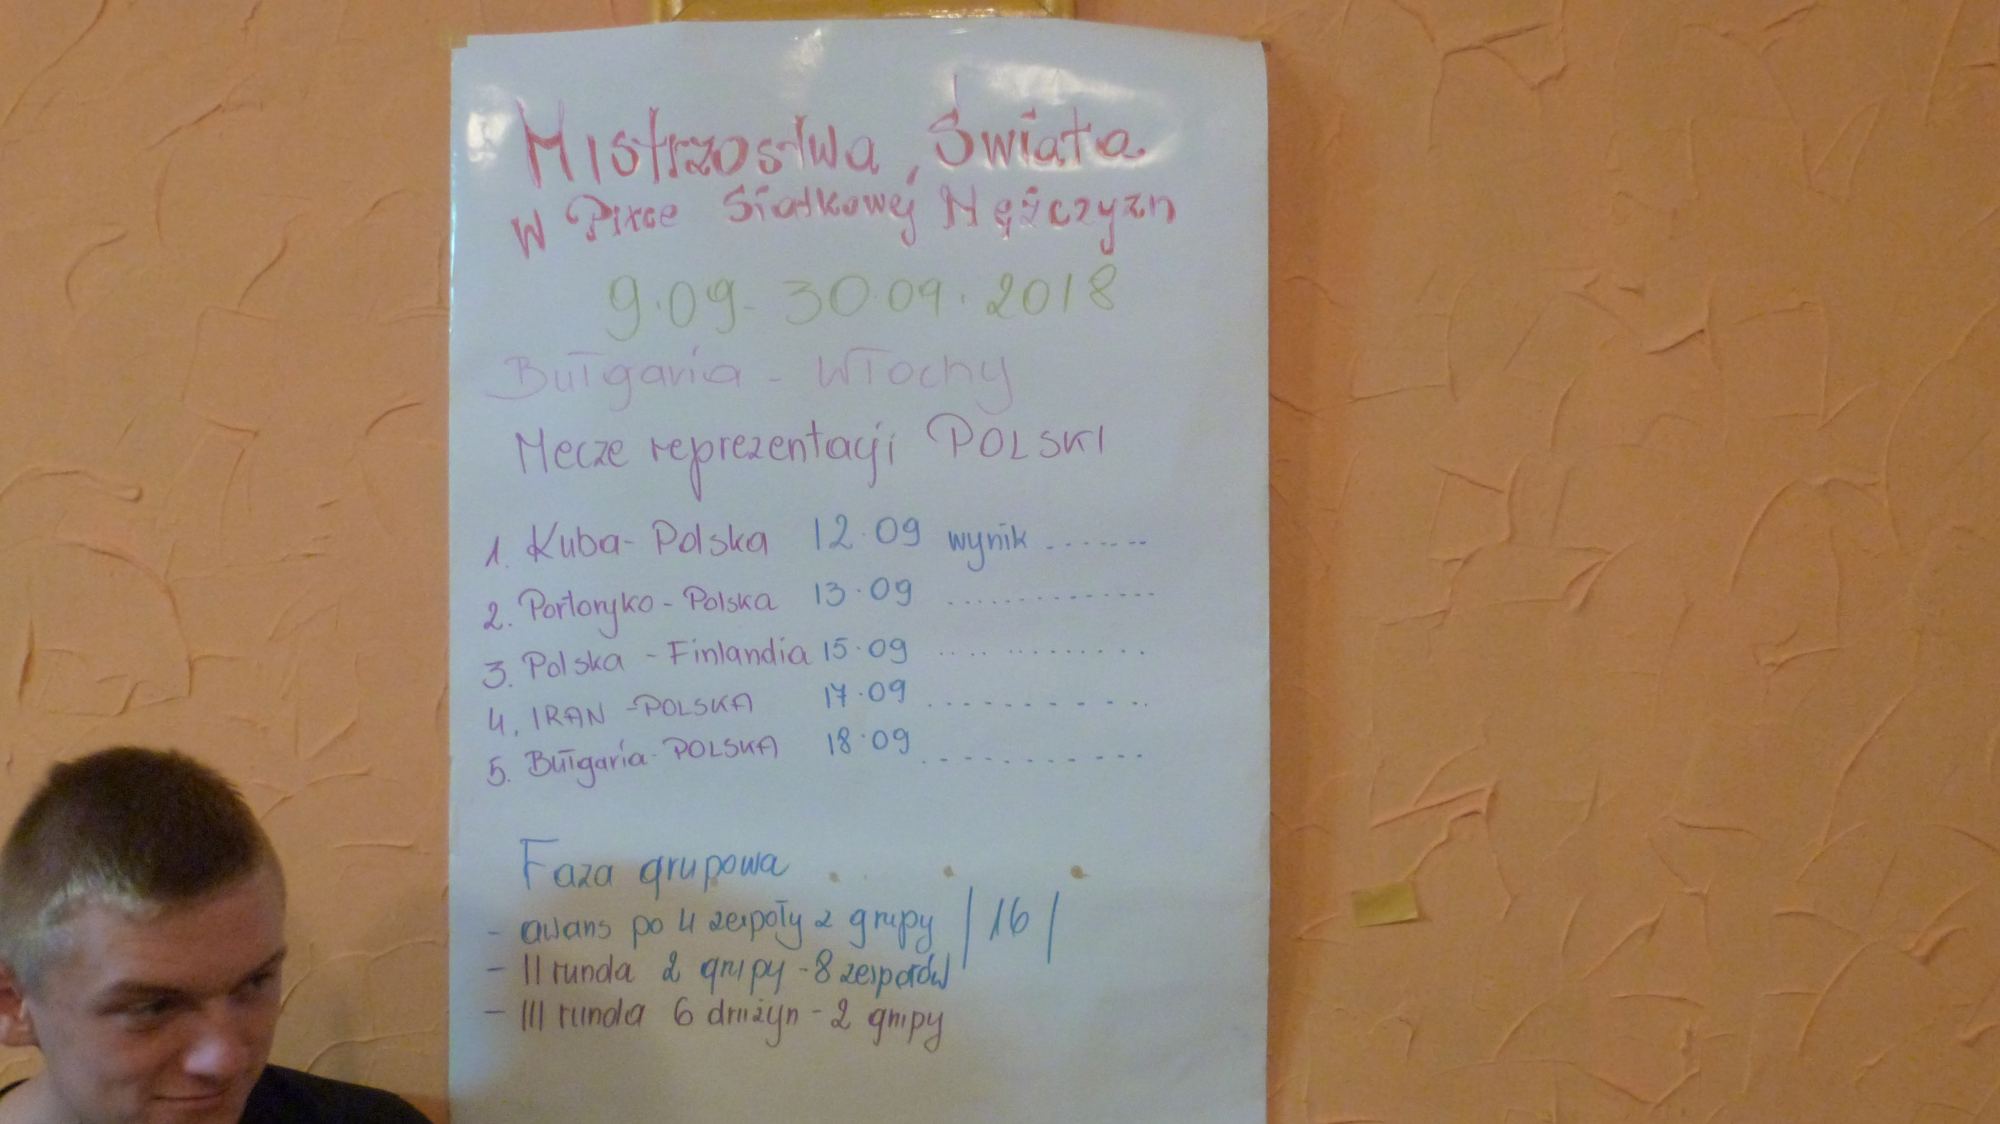 Mistrzostwa Świata
w Piłce Siatkowej Mężczyzn
9.09-30.09.2018
Bułgaria - Włochy
Mecze reprezentacji POLSKI
1. Kuba- Polska 12.09 wynik .......
2. Portoryko - Polska 13.09 ..............
3. Polska - Finlandia 15.09 ............
4. IRAN -POLSKA 17.09 ............
5. Bułgaria- POLSKA 18.09 ...........
Faza grupowa
- awans po 4 zespoły z grupy |16|
- II runda 2 grupy - 8 zespołów
- III runda 6 drużyn - 2 grupy